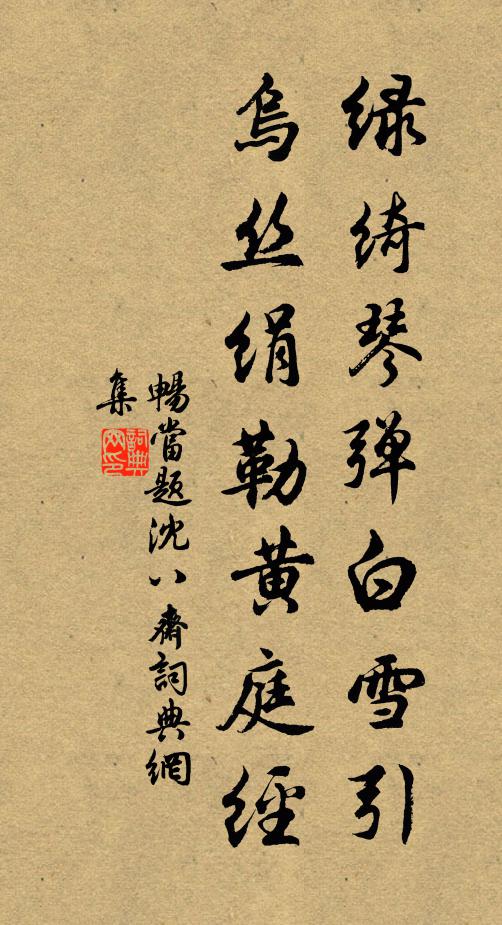 绿绮琴弹白雪引
乌丝绢勒黄庭经
畅當题沈八斋詞典網
集
詞典网印